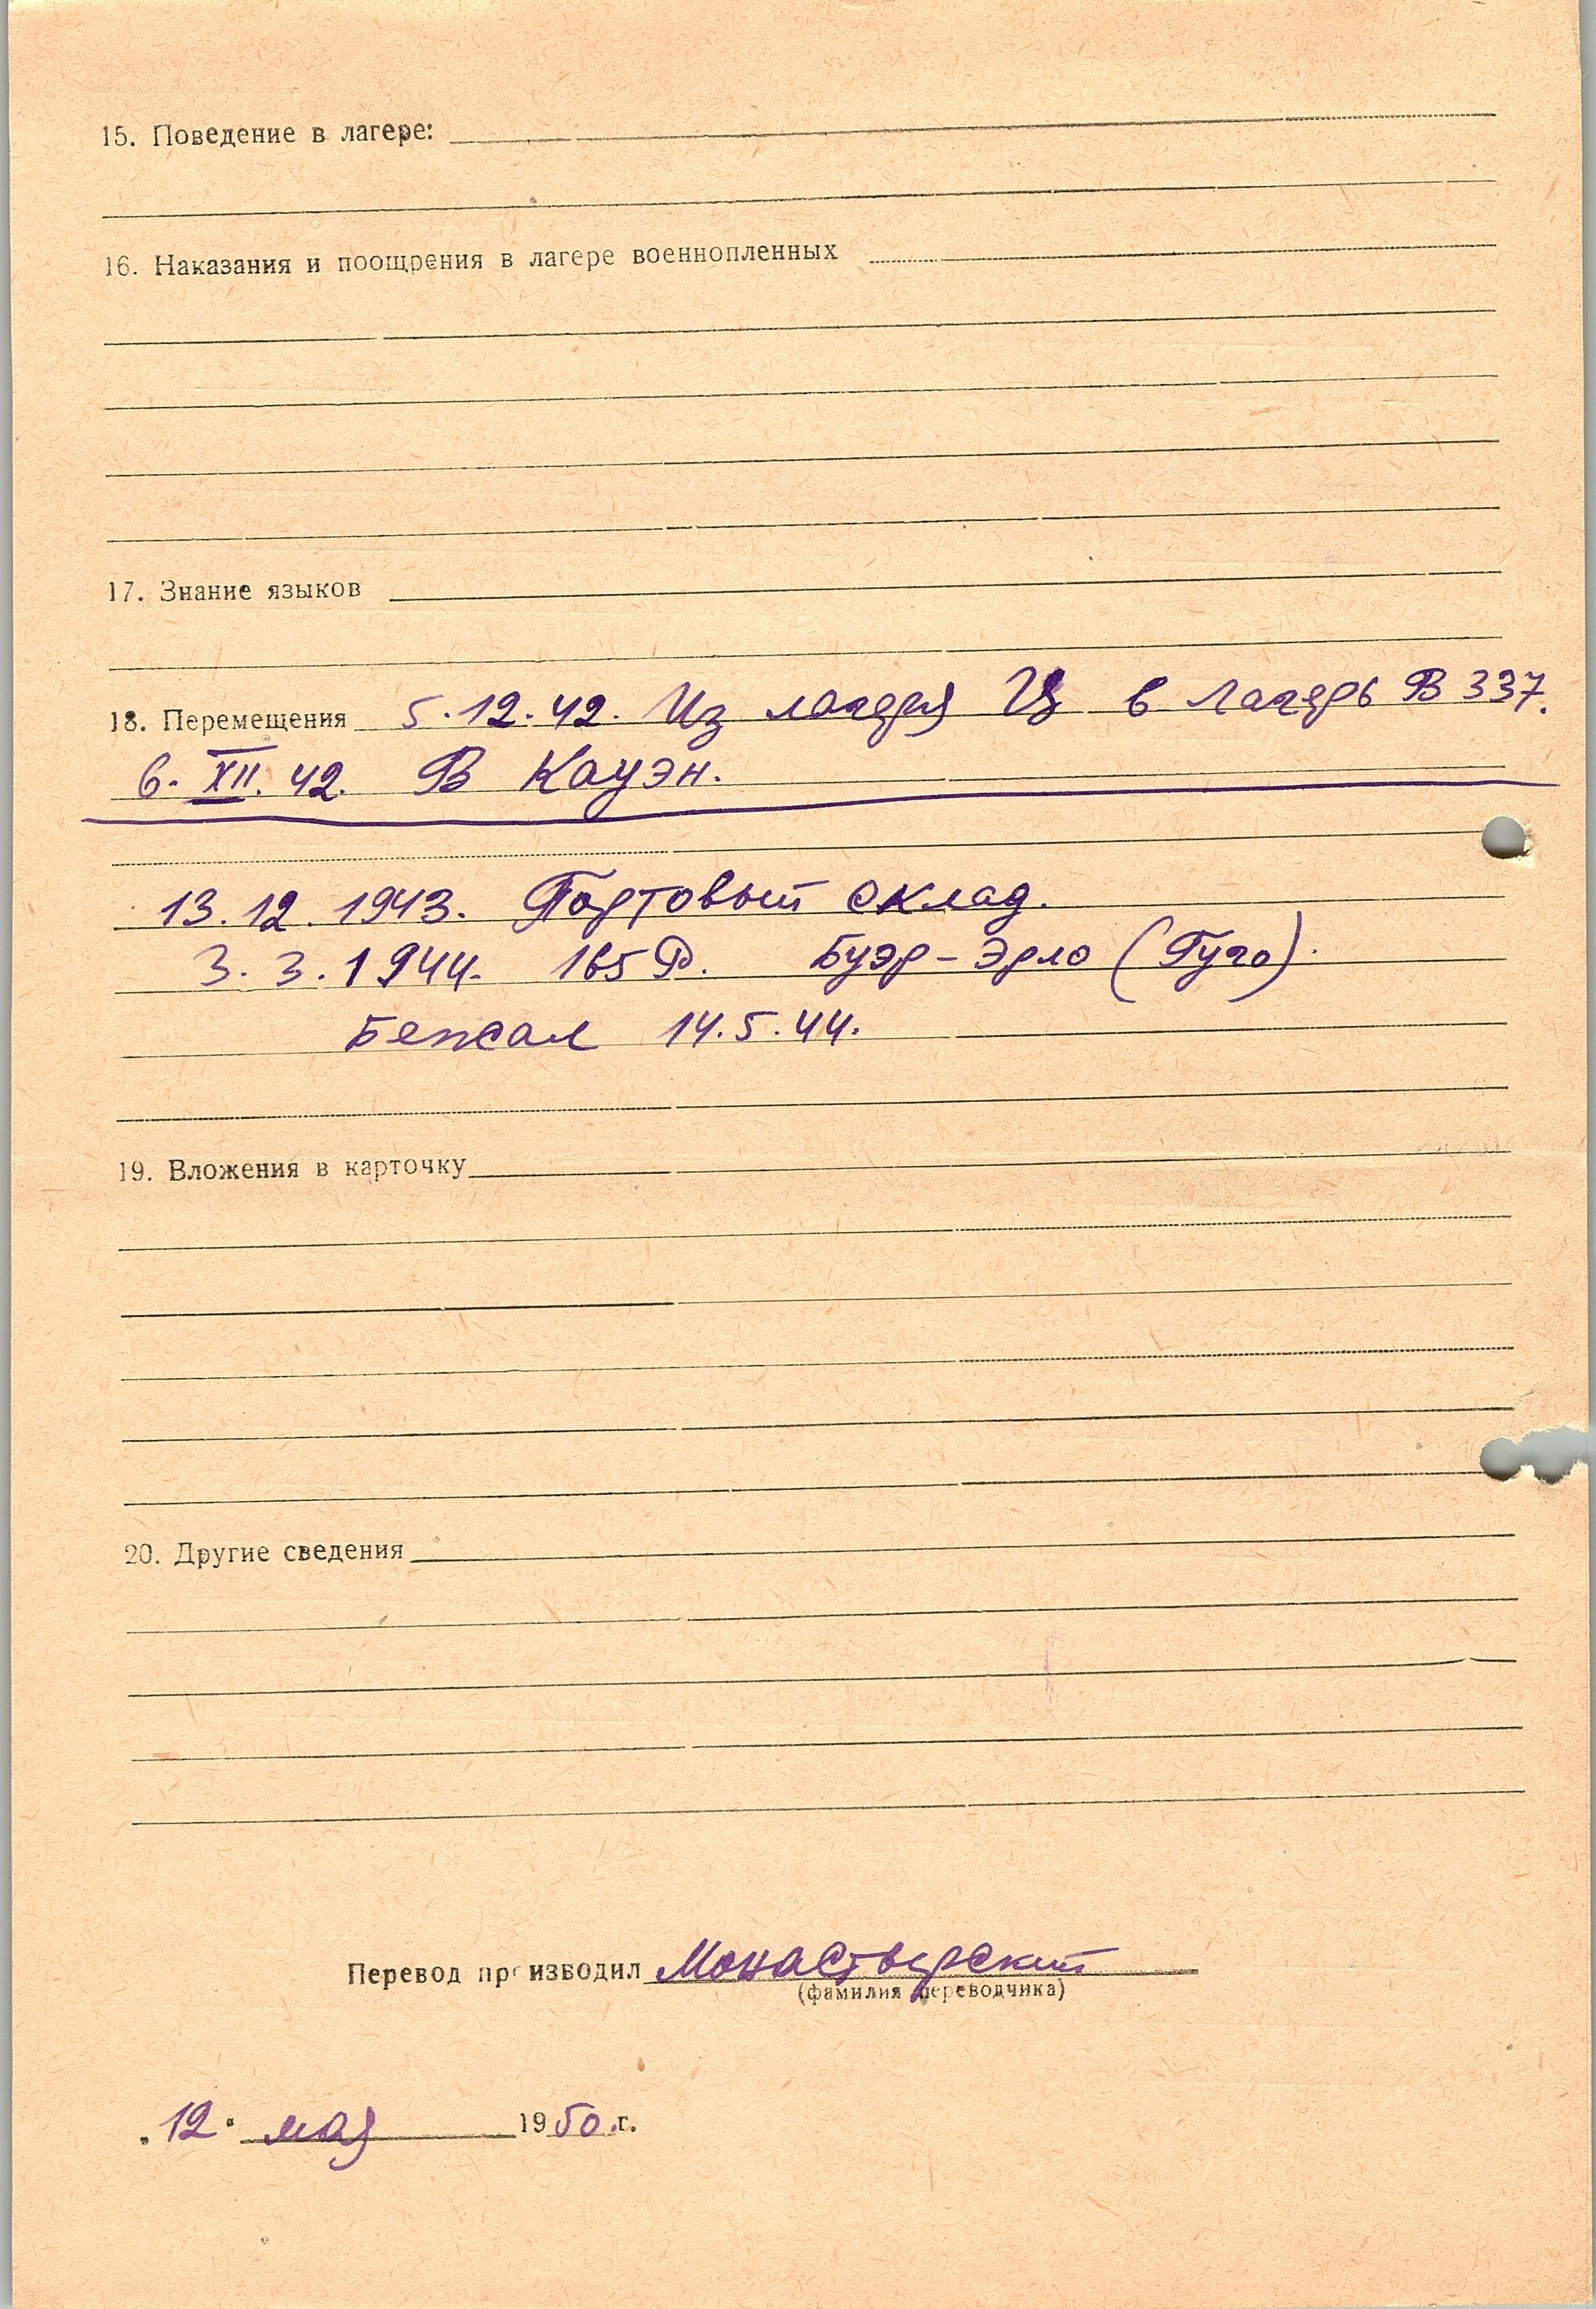 15. Поведение в лагере:
16. Наказания и поощрения в лагере военнопленных
17. Знание языков
18. Перемещения 5.12.42. Из лагеря Ц в Лагерь В 337.
6. XII. 42. В Кауэн.
13.12.1943. Портовый склад.
3.3.1944. 165 Р. Буэр-Эрло (Гуго).
Бежал 14.5.44.
19. Вложения в карточку
20. Другие сведения
Перевод производил Монастырский
(фамилия переводчика)
„12" мая 1950 г.